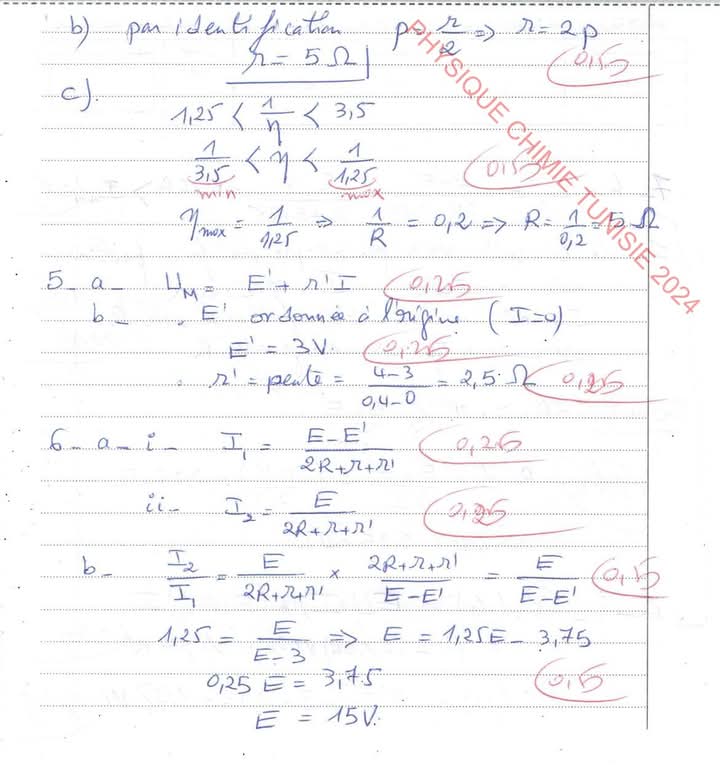 b) par identification p = r/2 => r = 2p
r = 5 Ω 0,5
c).
1,25 < 1/η < 3,5
1/3,5 < η < 1/1,25 0,5
min max
η max = 1/1,25 => 1/R = 0,2 => R = 1/0,2 = 5 Ω
5- a- U_M = E' + r'I 0,25
b- . E' ordonnée à l'origine (I=0)
E' = 3V. 0,25
. r' = pente = (4-3)/(0,4-0) = 2,5 Ω 0,25
6- a- i- I₁ = (E-E')/(2R+r+r') 0,25
ii- I₂ = E/(2R+r+r') 0,25
b- I₂/I₁ = E/(2R+r+r') × (2R+r+r')/(E-E') = E/(E-E') 0,5
1,25 = E/(E-3) => E = 1,25E - 3,75
0,25 E = 3,75 0,5
E = 15V.
PHYSIQUE CHIMIE TUNISIE 2024